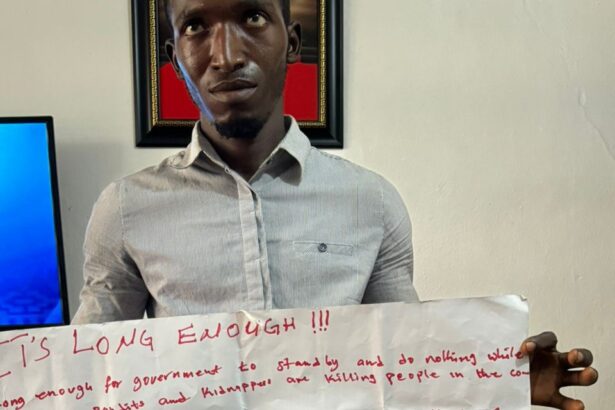 IT'S LONG ENOUGH !!!
ong enough for government to standby and do nothing while
and Kidnappers are killing people in the co